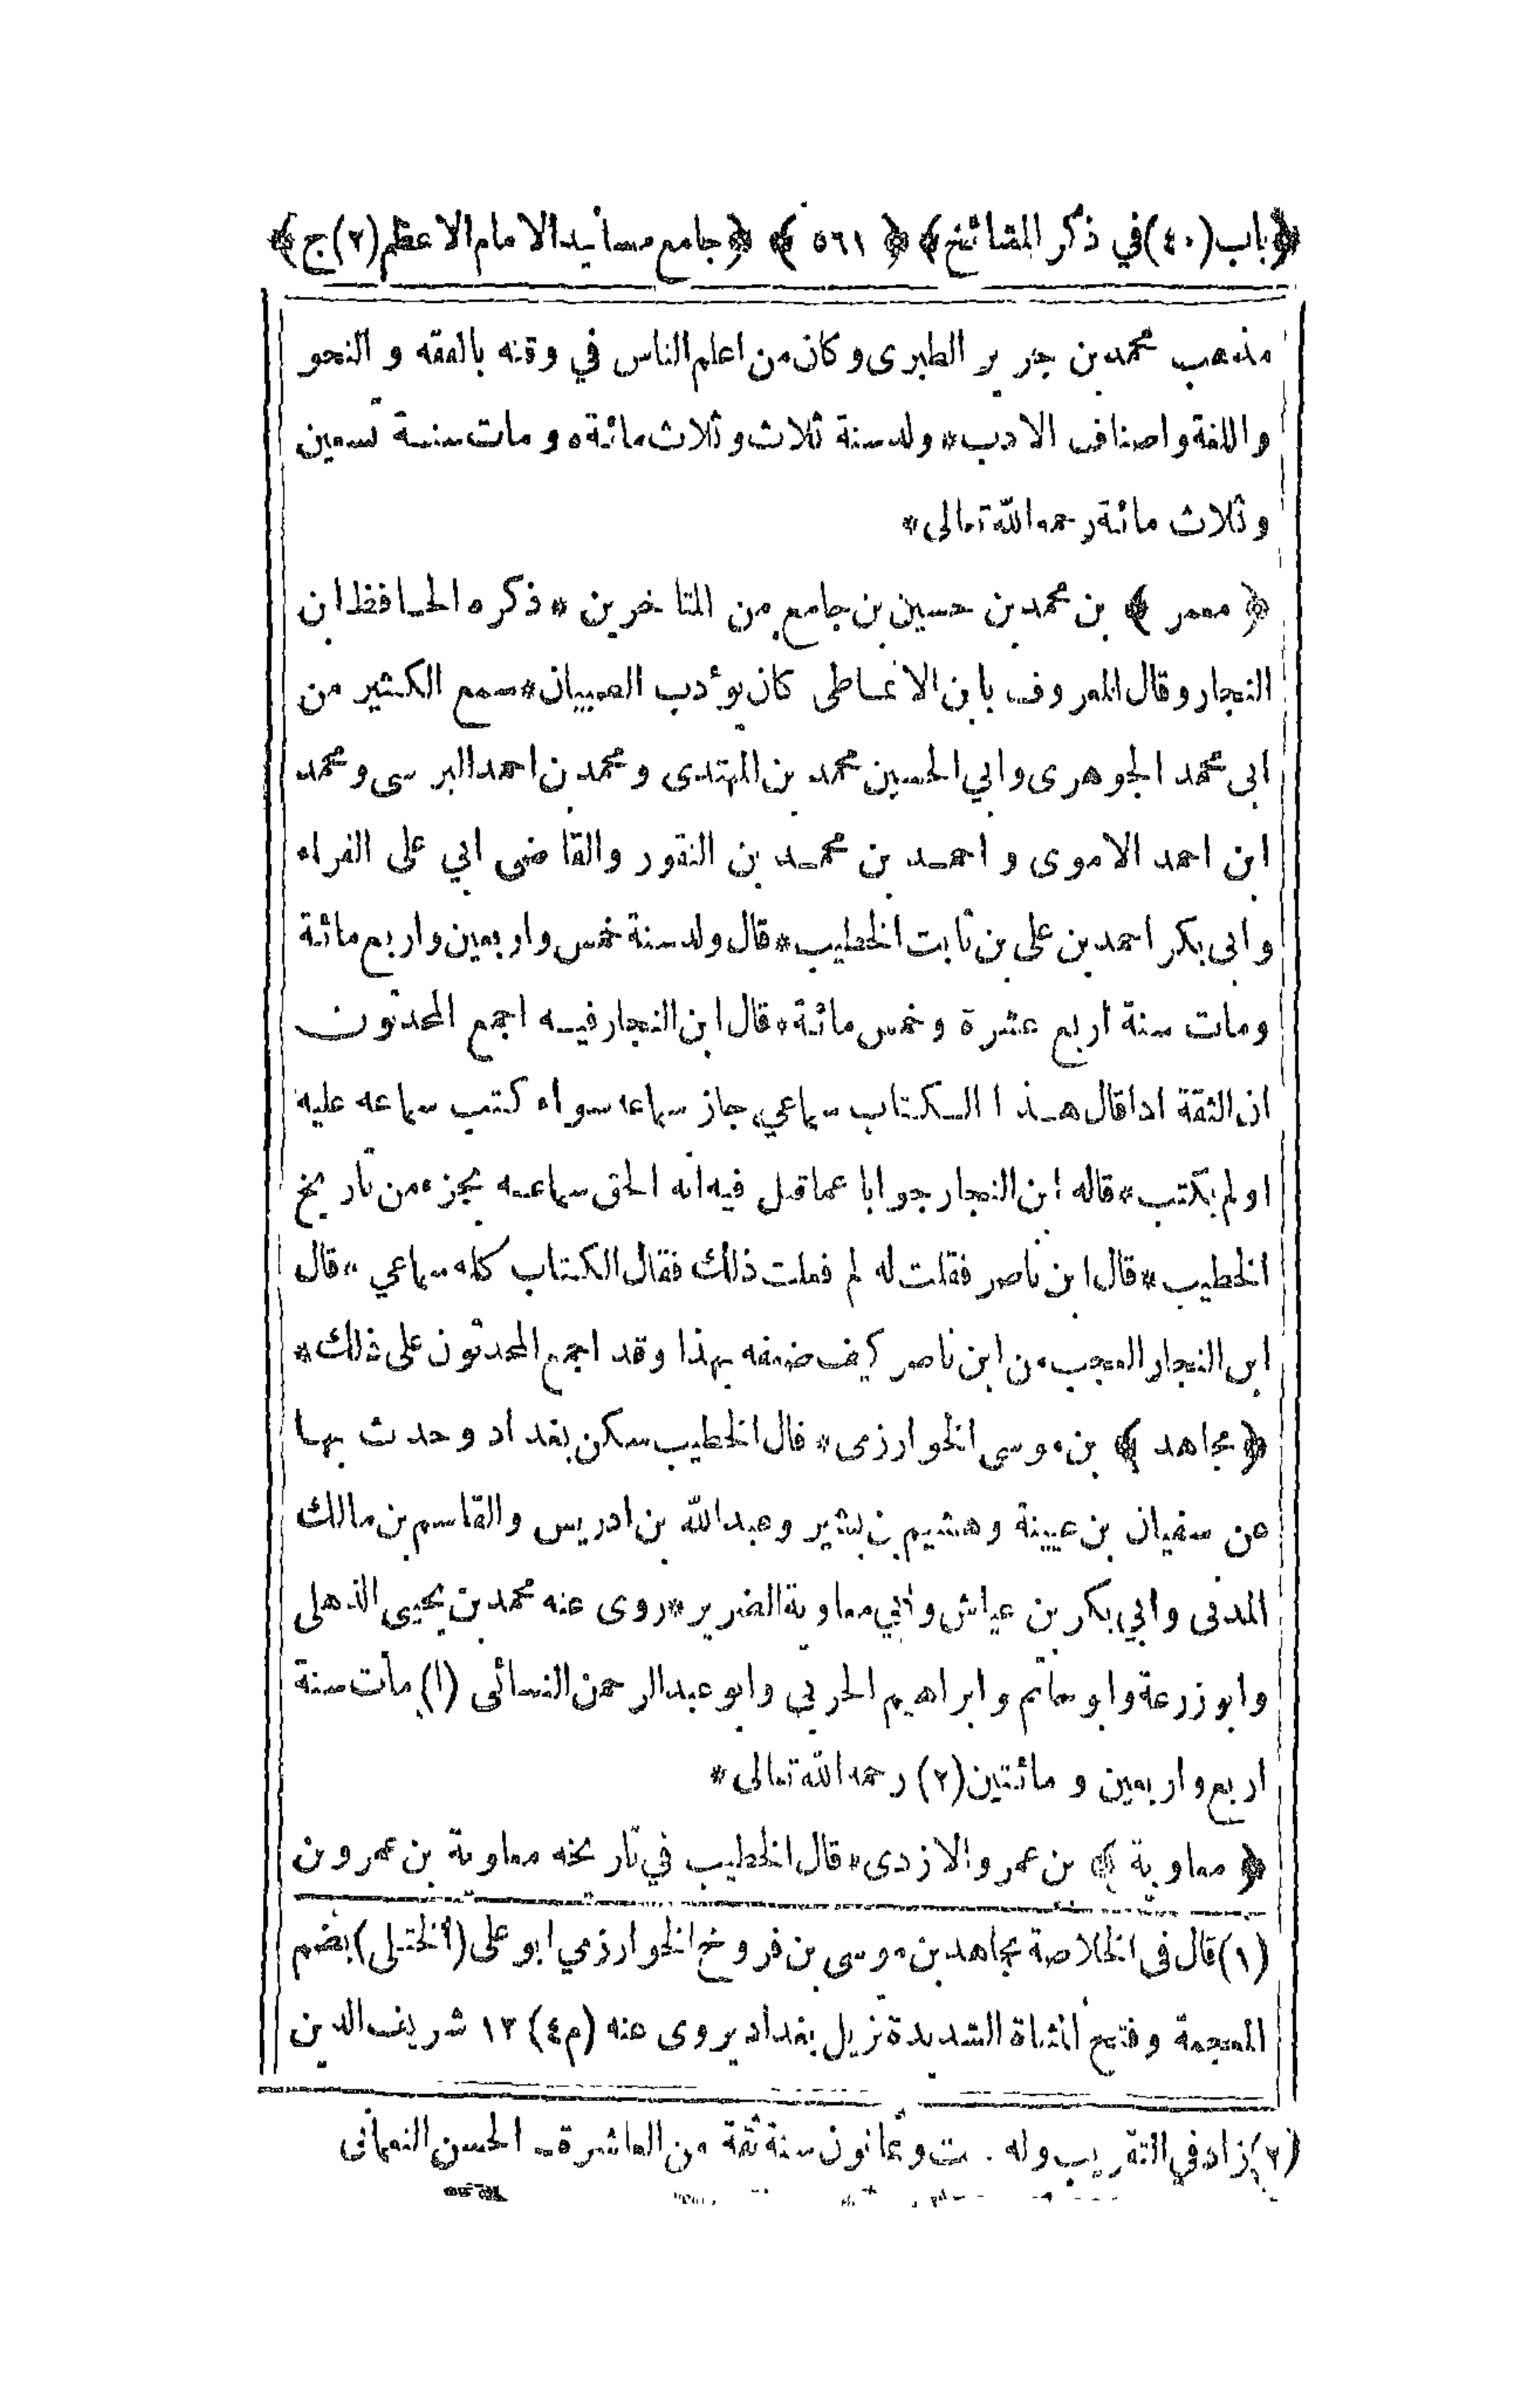 ﴿باب(٤٠)في ذكر المشائخ﴾ ﴿ ٥٦١ ﴾ ﴿جامع مسانيد الامام الاعظم(٢)ج﴾
مذهب محمد بن جرير الطبرى وكان من اعلم الناس في وقته بالفقه و النحو
واللغة واصناف الادب* ولد سنة ثلاث وثلاث مائة* و مات سنة تسعين
وثلاث مائة رحمه الله تعالى*
﴿ معمر ﴾ بن محمد بن حسين بن جامع من المتاخرين * ذكره الحافظ ابن
النجار وقال المعروف بابن الانماطى كان يؤدب الصبيان* سمع الكثير من
ابى محمد الجوهرى وابي الحسين محمد بن المهتدى ومحمد بن احمد البرسى ومحمد
ابن احمد الاموى و احمد بن محمد بن النقور والقاضى ابي على الفراء
وابى بكر احمد بن على بن ثابت الخطيب* قال ولد سنة خمس واربعين واربع مائة
ومات سنة اربع عشرة وخمس مائة* قال ابن النجار فيه اجمع المحدثون
ان الثقة اذا قال هذا الكتاب سماعي جاز سماعه سواء كتب سماعه عليه
او لم يكتب* قاله ابن النجار جوابا عما قيل فيه انه الحق سماعه بجزء من تاريخ
الخطيب* قال ابن ناصر فقلت له لم فعلت ذلك فقال الكتاب كله سماعي * قال
ابن النجار العجب من ابن ناصر كيف ضعفه بهذا وقد اجمع المحدثون على ذلك*
﴿ مجاهد ﴾ بن موسى الخوارزمى* قال الخطيب سكن بغداد وحدث بها
عن سفيان بن عيينة وهشيم بن بشير وعبد الله بن ادريس والقاسم بن مالك
المدنى وابي بكر بن عياش وابي معاوية الضرير* روى عنه محمد بن يحيى الذهلى
وابو زرعة وابو حاتم وابراهيم الحربي وابو عبد الرحمن النسائى (١) مات سنة
اربع واربعين و مائتين(٢) رحمه الله تعالى*
﴿ معاوية ﴾ بن عمرو الازدى* قال الخطيب في تاريخه معاوية بن عمرو بن
(١) قال فى الخلاصة مجاهد بن موسى بن فروخ الخوارزمي ابو على (الختلى) بضم
المعجمة وفتح المثناة الشديدة نزيل بغداد يروى عنه (م٤) ١٢ شريف الدين
(٢) زاد في التقريب وله ت وثمانون سنة ثقة من العاشرة۔ الحسن النعمانى